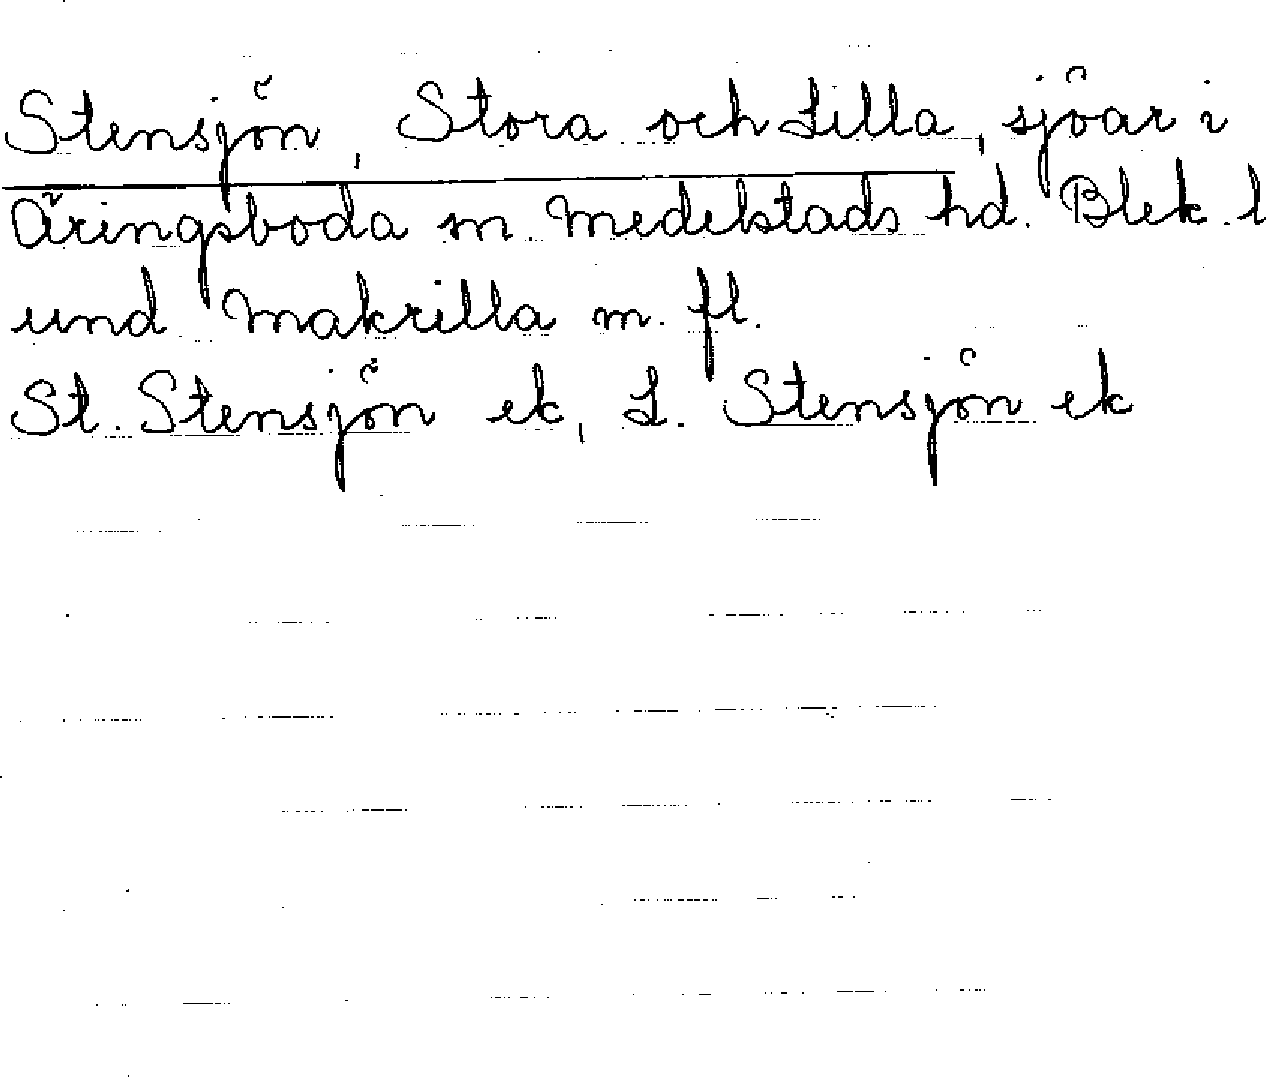 Stensjön, Stora och Lilla, sjöar i
Äringsboda m. Medelstads hd. Blek. l
und Makrilla m. fl.
St. Stensjön ek, L. Stensjön ek